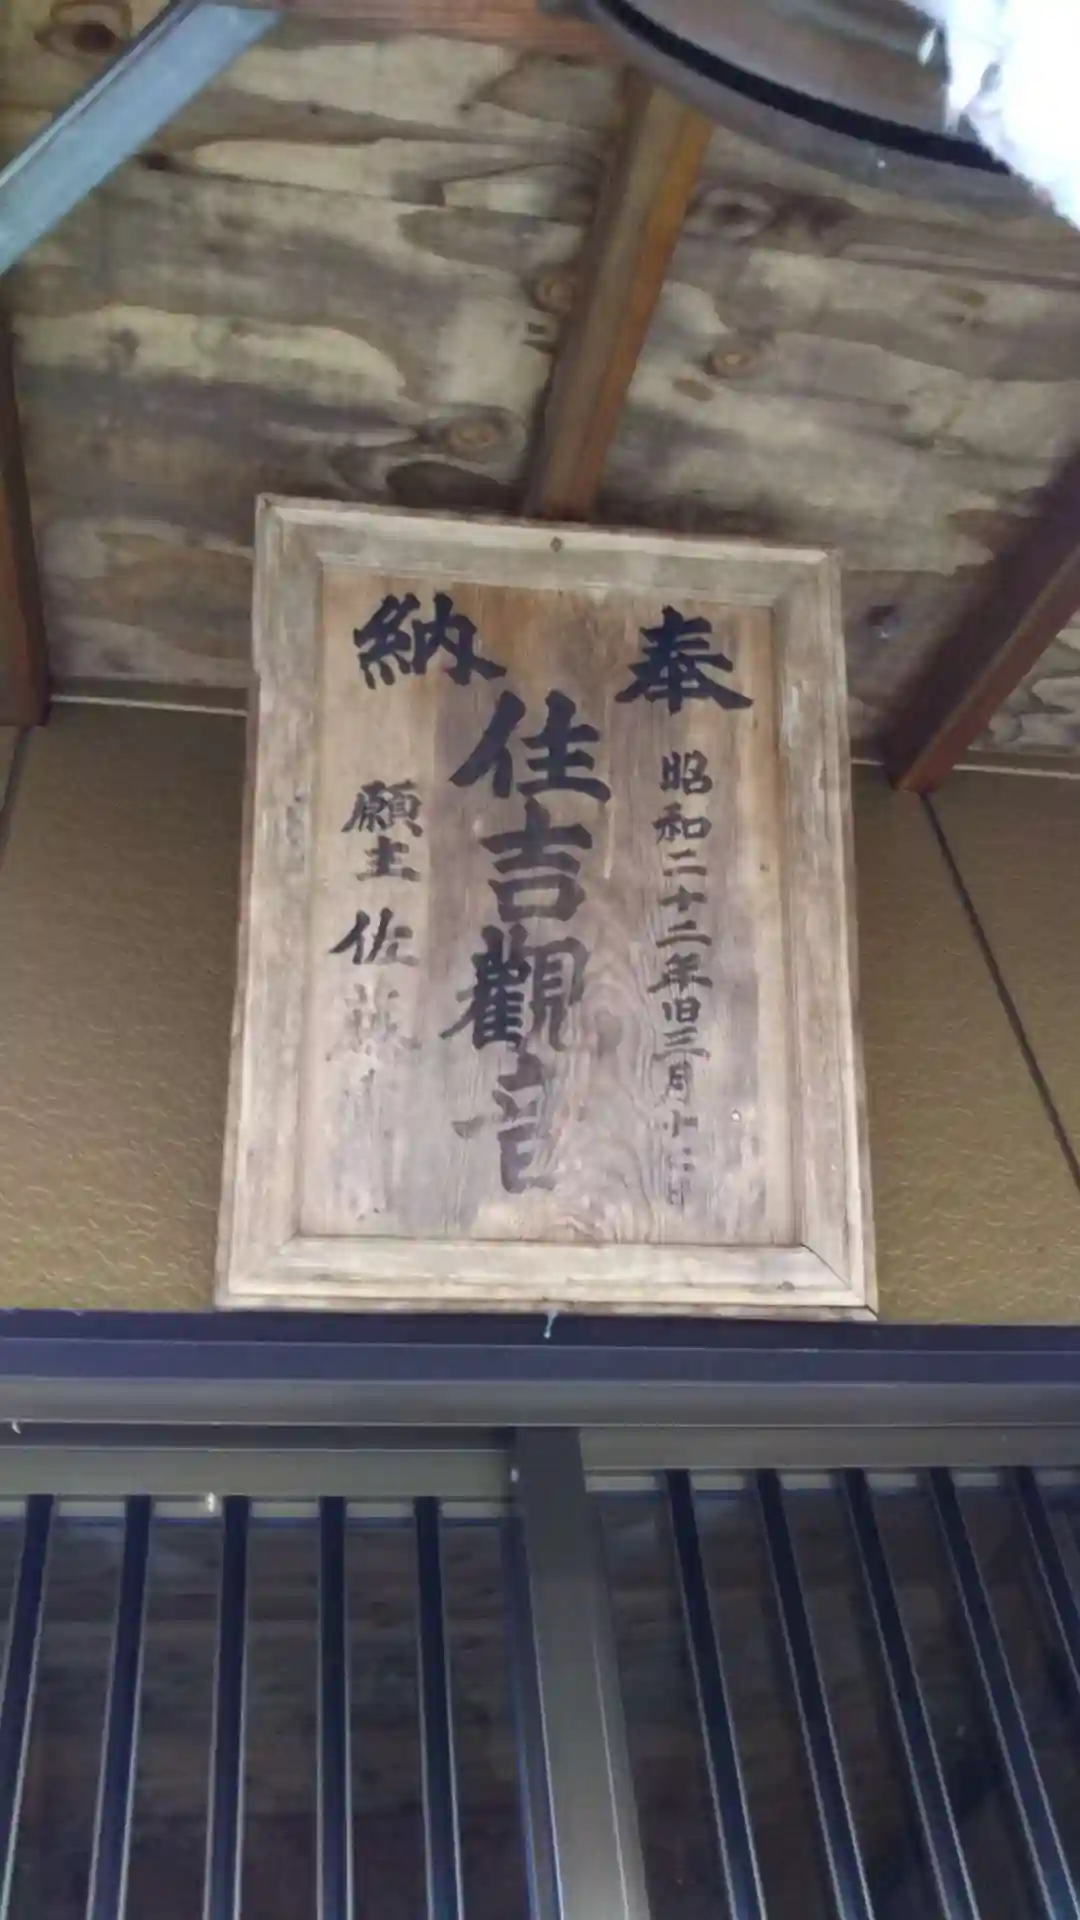 奉納
昭和二十二年旧三月十
住吉觀音
願主 佐藤